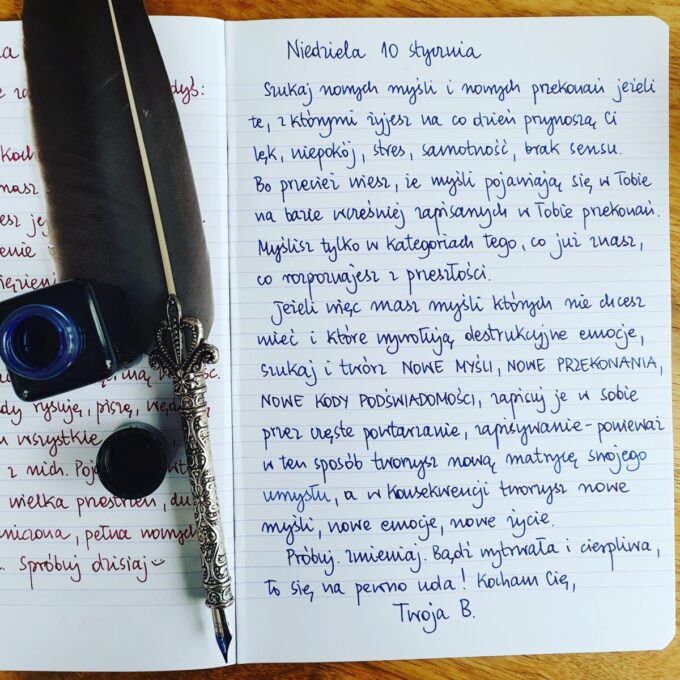 a
dyś:
koch
mas
esz je
enie
ięzieni
dy rysuję, piszę, wę
m wszystkie
z nich. Poj
wielka przestrzeń, du
niczona, pełna nowych
. Spróbuj dzisiaj
Niedziela 10 stycznia
Szukaj nowych myśli i nowych przekonań jeżeli
te, z którymi żyjesz na co dzień przynoszą Ci
lęk, niepokój, stres, samotność, brak sensu.
Bo przecież wiesz, że myśli pojawiają się w Tobie
na bazie wcześniej zapisanych w Tobie przekonań.
Myślisz tylko w kategoriach tego, co już znasz,
co rozpoznajesz z przeszłości.
Jeżeli więc masz myśli których nie chcesz
mieć i które wywołują destrukcyjne emocje,
szukaj i twórz NOWE MYŚLI, NOWE PRZEKONANIA,
NOWE KODY PODŚWIADOMOŚCI, zapisuj je w sobie
przez częste powtarzanie, zapisywanie - ponieważ
w ten sposób tworzysz nową matrycę swojego
umysłu, a w konsekwencji tworzysz nowe
myśli, nowe emocje, nowe życie.
Próbuj. Zmieniaj. Bądź wytrwała i cierpliwa,
To się na pewno uda! Kocham Cię,
Twoja B.